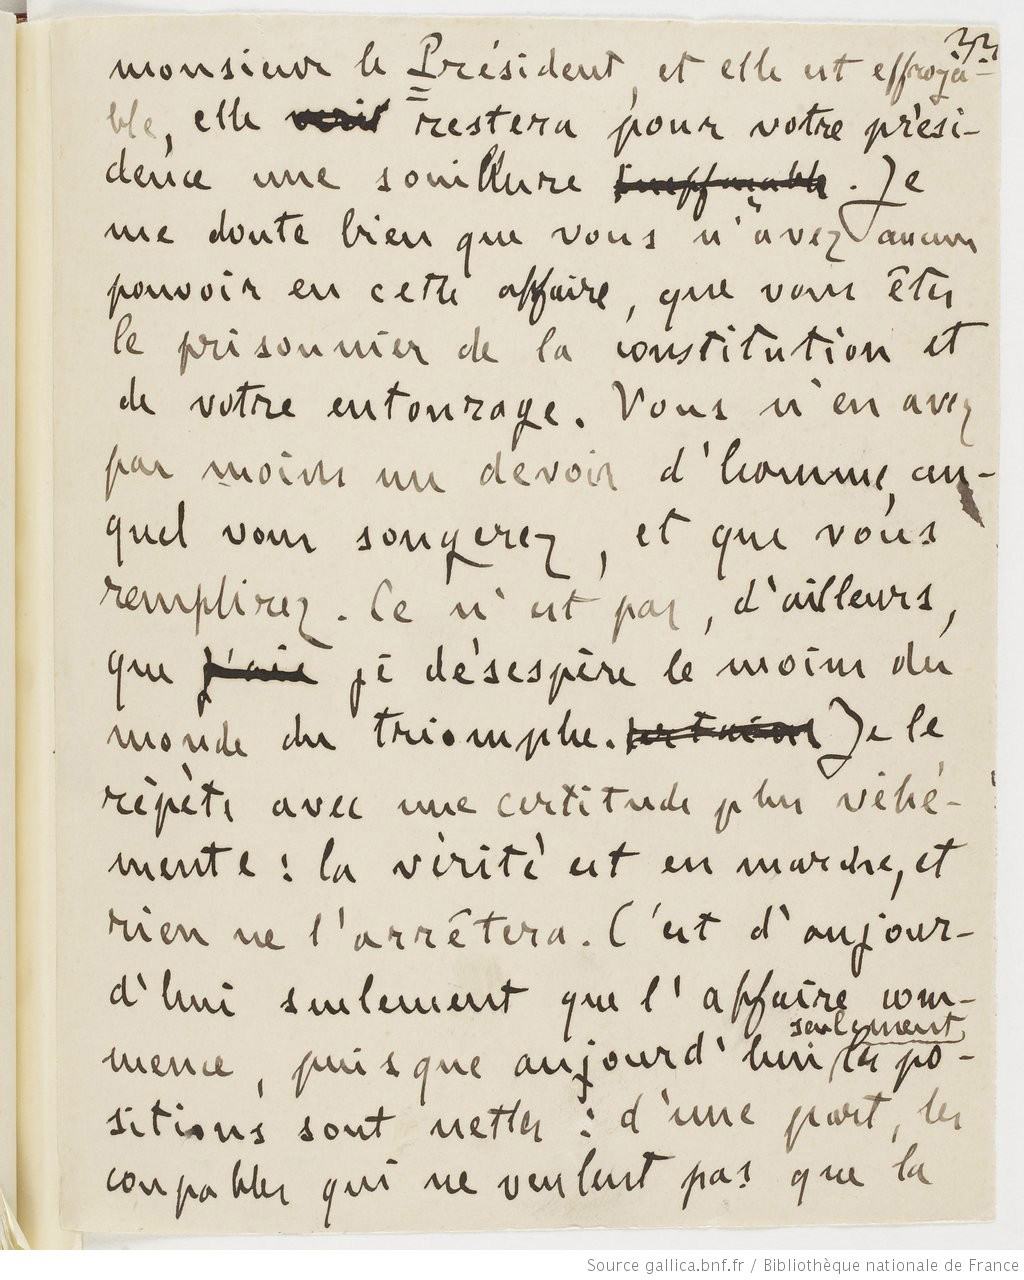 33
monsieur le Président, et elle est effroya-
ble, elle restera pour votre prési-
dence une souillure ineffaçable. Je
me doute bien que vous n'avez aucun
pouvoir en cette affaire, que vous êtes
le prisonnier de la constitution et
de votre entourage. Vous n'en avez
pas moins un devoir d'homme, au-
quel vous songerez, et que vous
remplirez. Ce n'est pas, d'ailleurs,
que j'aie je désespère le moins du
monde du triomphe. Je le
répète avec une certitude plus véhé-
mente : la vérité est en marche, et
rien ne l'arrêtera. C'est d'aujour-
d'hui seulement que l'affaire com-
seulement
mence, puisque aujourd'hui les po-
sitions sont nettes : d'une part, les
coupables qui ne veulent pas que la
Source gallica.bnf.fr / Bibliothèque nationale de France